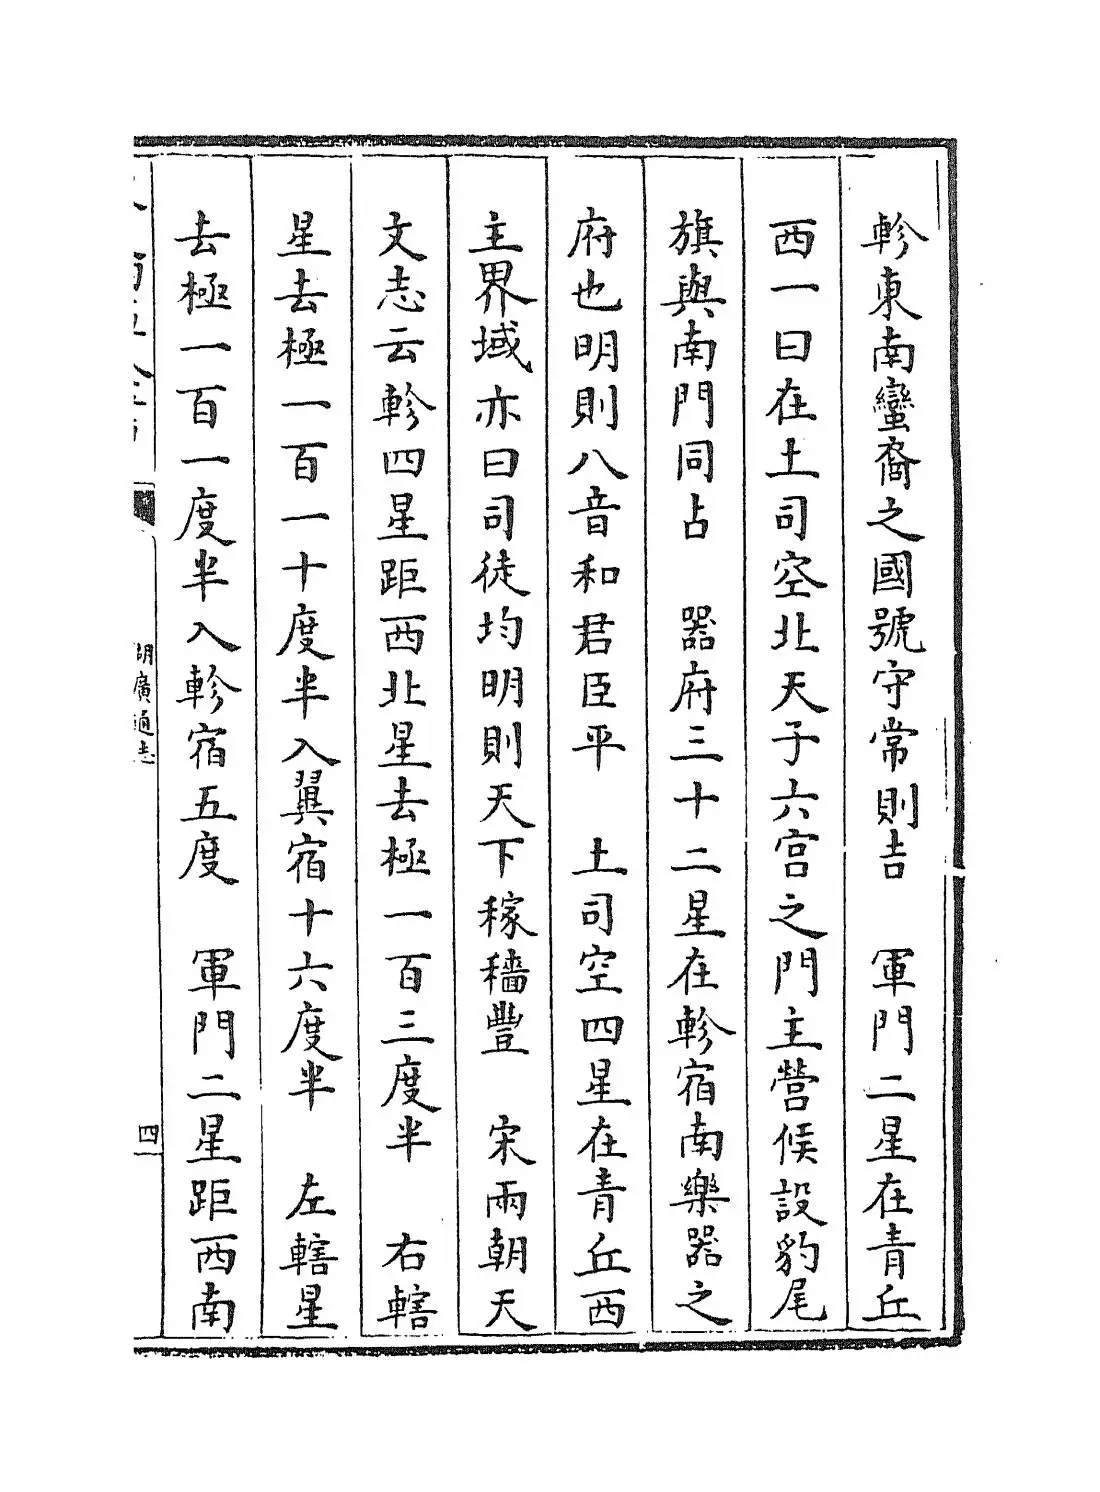 軫東南蠻裔之國號守常則吉　軍門二星在青丘
西一曰在土司空北天子六宫之門主營候設豹尾
旗與南門同占　器府三十二星在軫宿南樂器之
府也明則八音和君臣平　土司空四星在青丘西
主界域亦曰司徒均明則天下稼穡豐　宋兩朝天
文志云軫四星距西北星去極一百三度半　右轄
星去極一百一十度半入翼宿十六度半　左轄星
去極一百一度半入軫宿五度　軍門二星距西南
湖廣通志
四